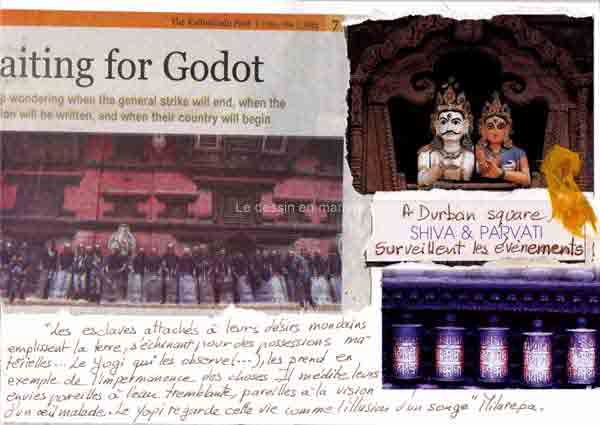 The Kathmandu Post
7
aiting for Godot
p wondering when the general strike will end, when the
ion will be written, and when their country will begin
Le dessin en mar
A Durban square,
SHIVA & PARVATI
Surveillent les évènements
"Les esclaves attachés à leurs désirs mondains
emplissent la terre, s'échinant pour des possessions ma-
térielles... Le yogi qui les observe(...), les prend en
exemple de l'impermanence des choses. Il médite leurs
envies pareilles à l'eau tremblante, pareilles à la vision
d'un œil malade. Le yogi regarde cette vie comme l'illusion d'un songe" Milarepa.